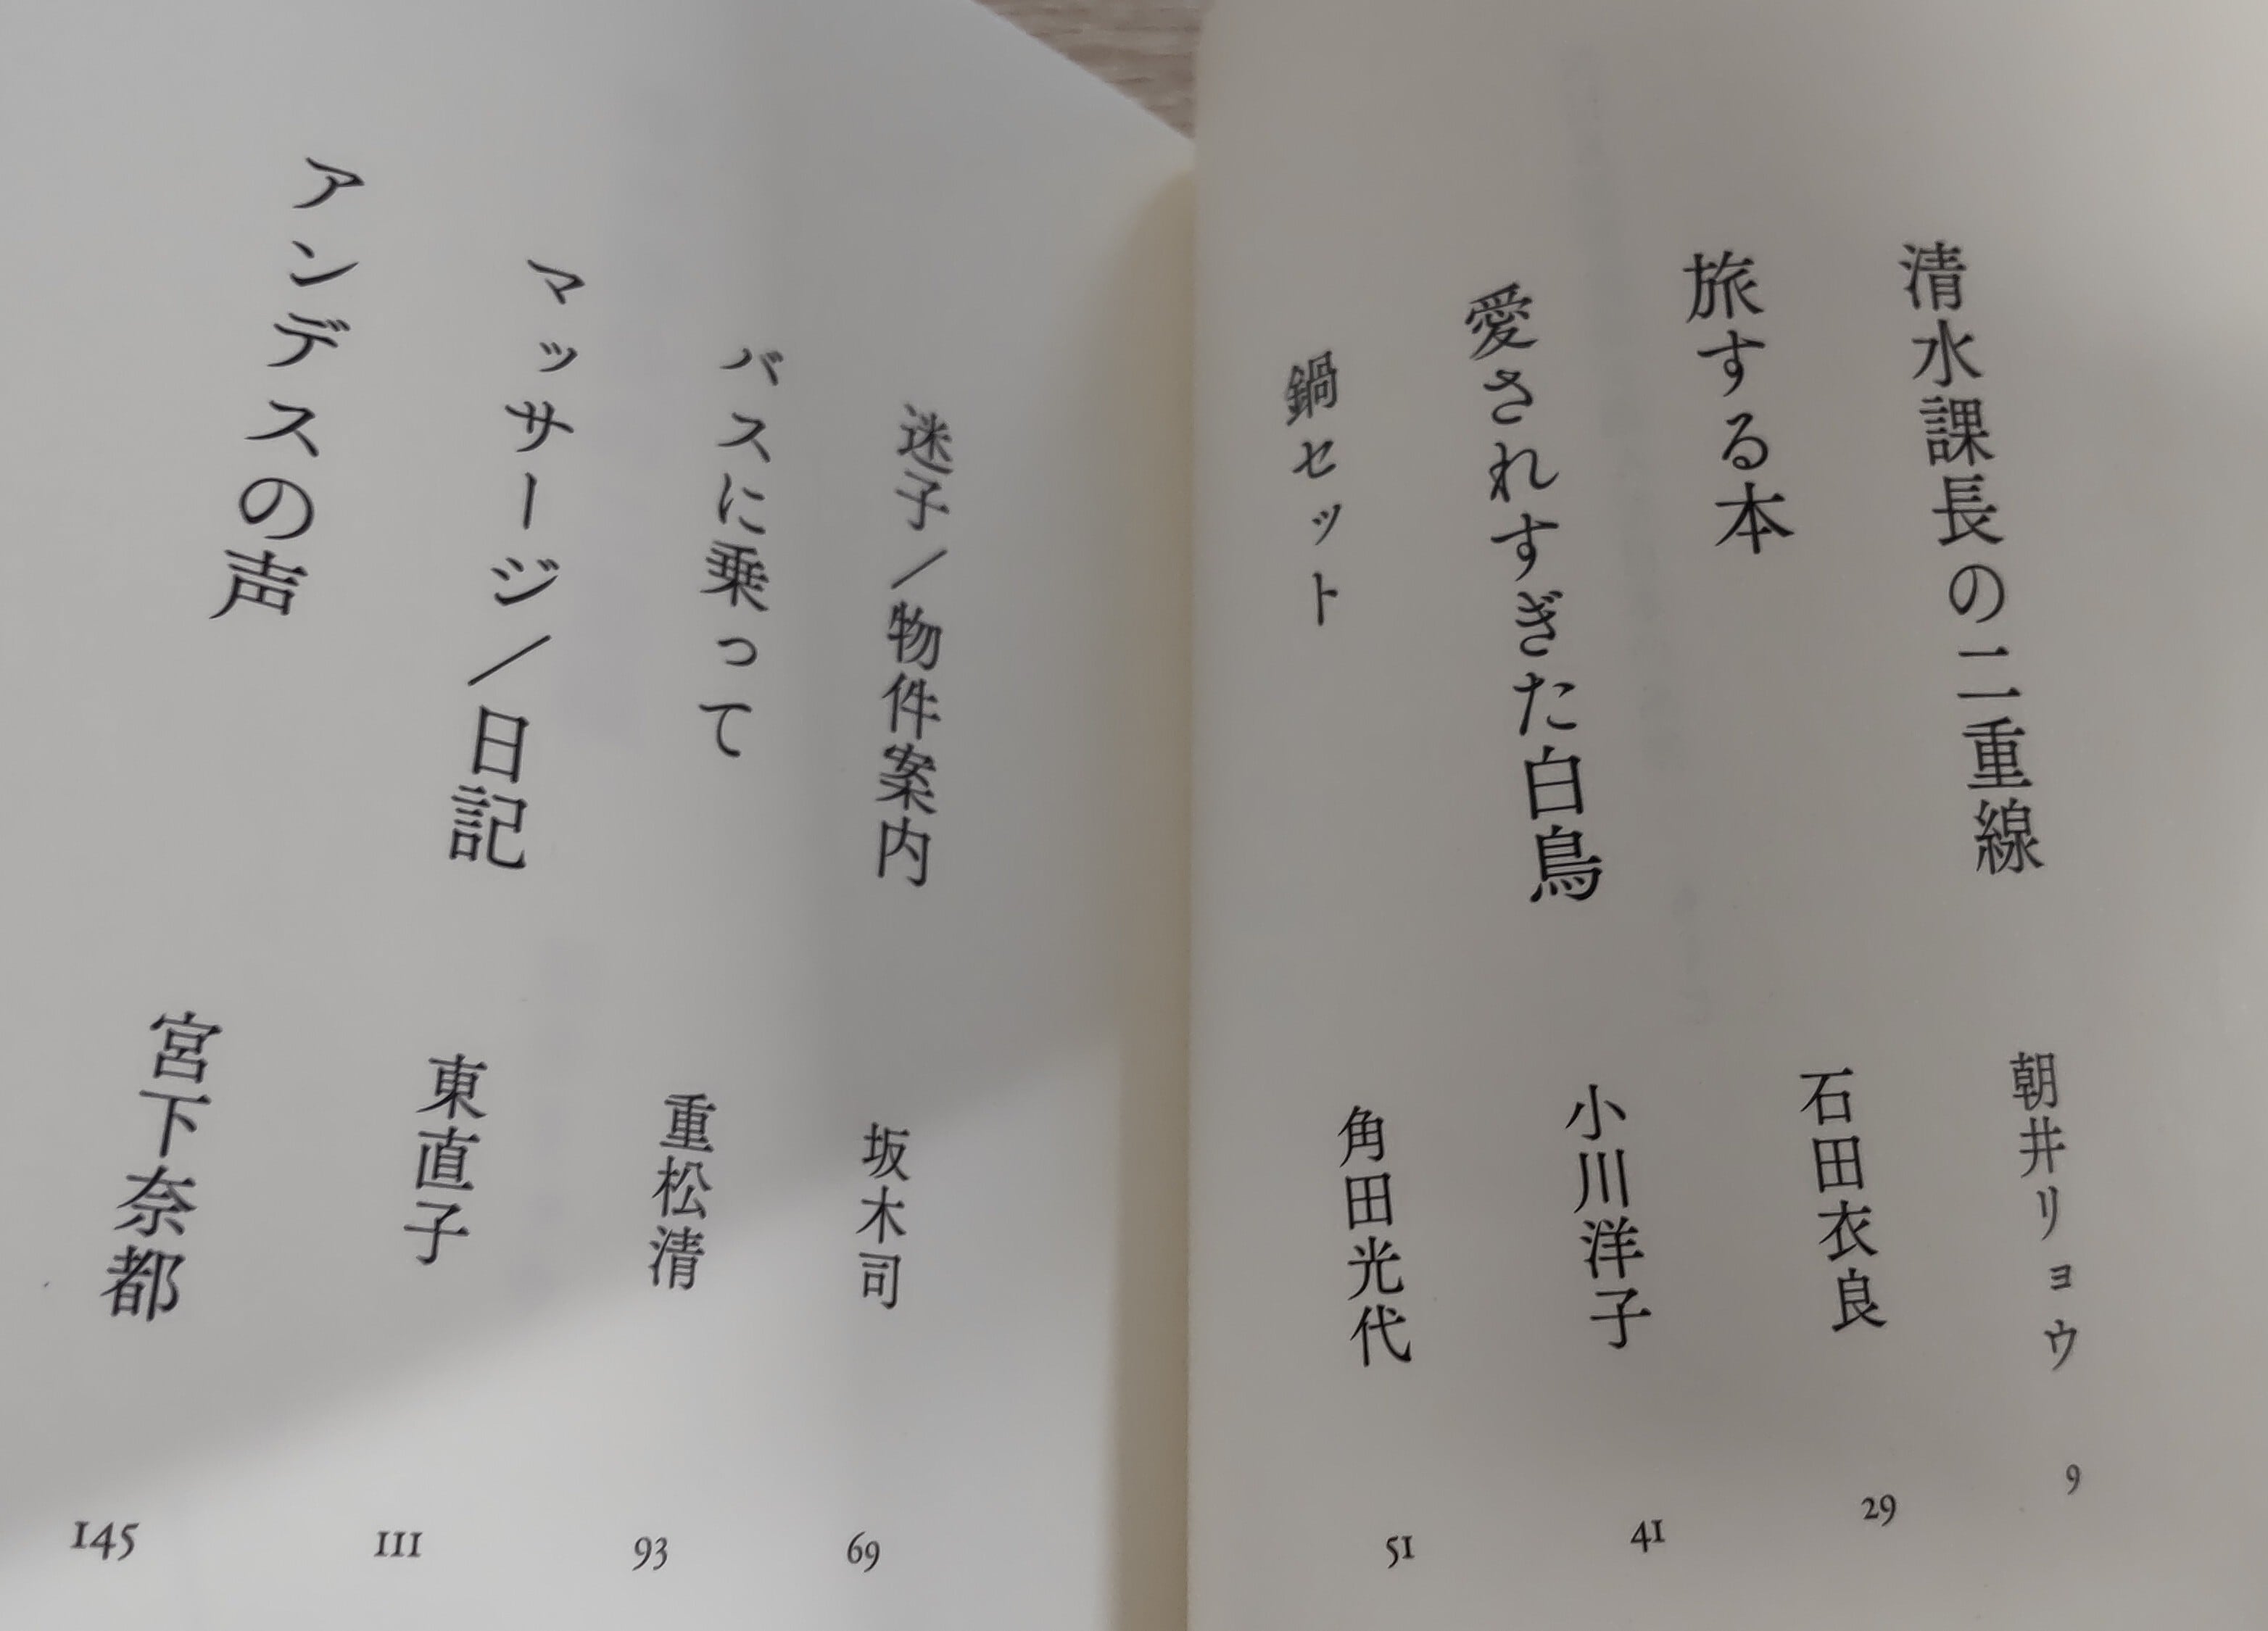 清水課長の二重線 朝井リョウ 9
旅する本 石田衣良 29
愛されすぎた白鳥 小川洋子 41
鍋セット 角田光代 51
迷子／物件案内 坂木司 69
バスに乗って 重松清 93
マッサージ／日記 東直子 111
アンデスの声 宮下奈都 145